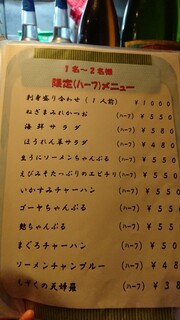 1名～2名様
限定(ハーフ)メニュー
刺身盛り合わせ (1人前) ¥1000
ねぎまみれかつお (ハーフ) ¥550
海鮮サラダ (ハーフ) ¥580
ほうれん草サラダ (ハーフ) ¥480
生うにソーメンちゃんぷる (ハーフ) ¥55
えびみそたっぷりのエビチリ (ハーフ) ¥55
いかすみチャーハン (ハーフ) ¥50
ゴーヤちゃんぷる (ハーフ) ¥55
麩ちゃんぷる (ハーフ) ¥5
まぐろチャーハン (ハーフ) ¥50
ソーメンチャンプルー (ハーフ) ¥48
もずくの天婦羅 (ハーフ) ¥38